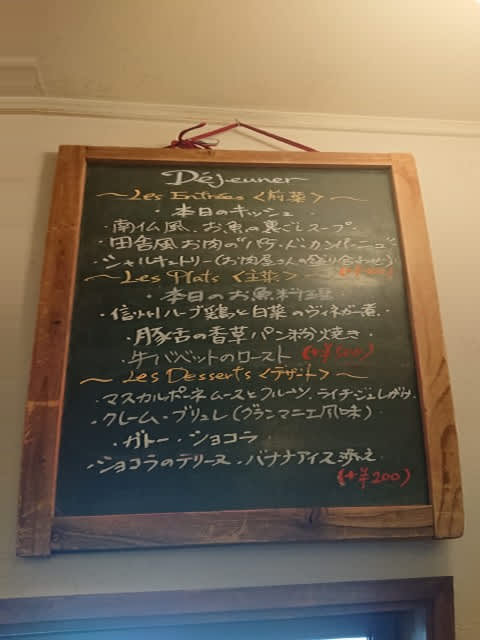 Déjeuner
～Les Entrées＜前菜＞～
・本日のキッシュ
・南仏風、お魚の裏ごしスープ・
・田舎風お肉の"パテ・ド・カンパーニュ"
・シャルキュトリー(お肉屋さんの盛り合わせ)
～Les Plats＜主菜＞～
・本日のお魚料理
・信州ハーブ鶏と白菜のヴィネガー煮・
・豚舌の香草パン粉焼き・
・牛バベットのロースト
～Les Desserts＜デザート＞～
・マスカルポーネムースとフルーツ、ライチジュレがけ・
・クレーム・ブリュレ(グランマニエ風味)
・ガトー・ショコラ
・ショコラのテリーヌ、バナナアイス添え
(+￥200)